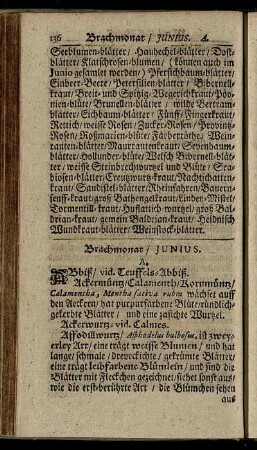 136 Brachmonat / JUNIUS. A.
Seeblumen-blätter / Hauhechel-blätter / Dost-
blätter / Klatschrosen-blumen / (können auch im
Junio gesamlet werden) Pfersichbaum-blätter /
Einbeer-Beere / Petersilien-blätter / Bibernell-
kraut / Breit- und Spitzig-Wegerichkraut / Pöo-
nien-blüte / Brunellen-blätter / wilde Bertram-
blätter / Eichbaum-blätter / Fünff-Fingerkraut /
Rettich / weisse Rosen / Zucker-Rosen / Provintz-
Rosen / Roßmarien-blüte / Färberröthe / Wein-
rauten-blätter / Maurrautenkraut / Sevenbaum-
blätter / Hollunder-blüte / Welsch Bibernell-blät-
ter / weisse Steinbrechwurzel und Blüte / Sca-
biosen-blätter / Creutzwurtz-kraut / Nachtschatten-
kraut / Saudistel-blätter / Rheinfahren / Bauern-
senff-kraut / groß Bathengelkraut / Linden-Mistel /
Tormentill-kraut / Huflattich-wurtzel / groß Bal-
drian-kraut / gemein Baldrian-kraut / Heidnisch
Wundkraut-blätter / Weinstock-blätter.
Brachmonat / JUNIUS.
A.
ABbiß / vid. Teuffels-Abbiß.
Ackermüntz / Calamenth / Kornmüntz /
Calamentha, Mentha sativa rubra wächset auff
den Aeckern / hat purpurfarbene Blüte / rundlich-
gekerbte Blätter / und eine zasichte Wurtzel.
Ackerwurtz vid. Calmes.
Affodillwurtz / Asphodelus bulbosus, ist zwey-
erley Art / eine trägt weisse Blumen / und hat
lange / schmale / dreyeckichte / gekrümte Blätter /
eine trägt leibfarbene Blümlein / und sind die
Blätter mit Fleckchen gezeichnet / siehet sonst aus /
wie die erst-berührte Art / die Blümchen sehen
aus